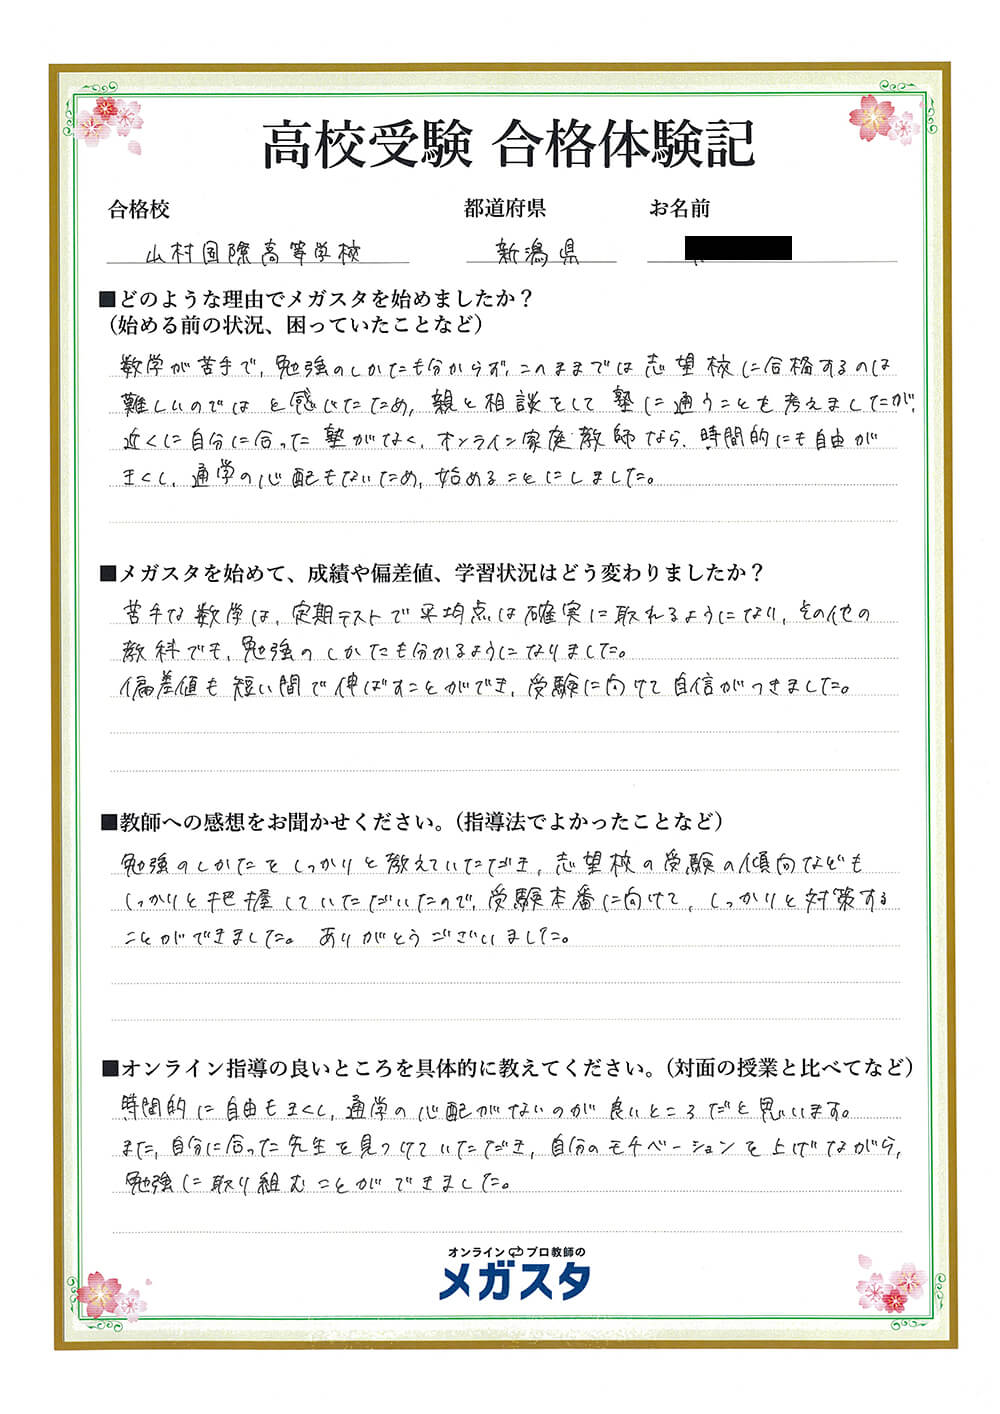 高校受験 合格体験記
合格校 都道府県 お名前
山村国際高等学校 新潟県
■どのような理由でメガスタを始めましたか？
（始める前の状況、困っていたことなど）
数学が苦手で、勉強のしかたも分からず、このままでは志望校に合格するのは
難しいのではと感じたため、親と相談をして塾に通うことを考えましたが、
近くに自分に合った塾がなく、オンライン家庭教師なら、時間的にも自由が
きくし、通学の心配もないため、始めることにしました。
■メガスタを始めて、成績や偏差値、学習状況はどう変わりましたか？
苦手な数学は、定期テストで平均点は確実に取れるようになり、その他の
教科でも、勉強のしかたも分かるようになりました。
偏差値も短い間で伸ばすことができ、受験に向けて自信がつきました。
■教師への感想をお聞かせください。（指導法でよかったことなど）
勉強のしかたをしっかりと教えていただき、志望校の受験の傾向なども
しっかりと把握していただいたので、受験本番に向けて、しっかりと対策する
ことができました。ありがとうございました。
■オンライン指導の良いところを具体的に教えてください。（対面の授業と比べてなど）
時間的に自由もきくし、通学の心配がないのが良いところだと思います。
また、自分に合った先生を見つけていただき、自分のモチベーションを上げながら、
勉強に取り組むことができました。
オンライン プロ教師の
メガスタ